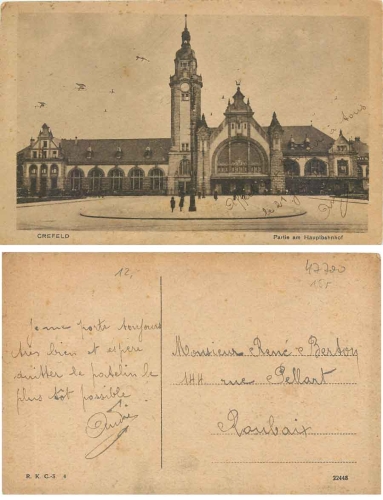 CREFELD
Partie am Hauptbahnhof
12,
47700
Je me porte toujours
très bien et espère
quitter le patelin le
plus tôt possible.
André
Monsieur René Berton
144 rue Pellart
Roubaix
R. K. C-3 4
32448